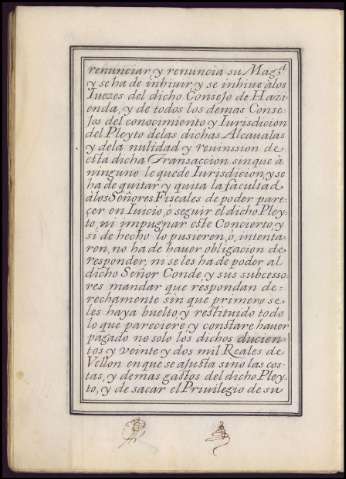 renunciar y renuncia su Mag.d
y se ha de inhivir y se inhive alos
Iuezes del dicho Consejo de Hazi
enda, y de todos los demas Conse-
Jos del conocimiento y Iurisdicion
del Pleyto delas dichas Alcavalas
y dela nulidad y revission de
esta dicha Transaccion sin que à
ninguno le quede Iurisdicion y se
ha de quitar y quita la facultad
àlos Señores Fiscales de poder pare-
çer en Iuicio, ò seguir el dicho Pley-
to, ni impugnar este Concierto y
si de hecho lo pusieren, ò, intenta
ren, no ha de hauer obligacion de
responder, ni se les ha de poder al
dicho Señor Conde y sus subcesso
res mandar que respondan de:
rechamente sin que primero se
les haya buelto y restituido todo
lo que pareciere y constare hauer
pagado no solo los dichos ducien
tos y veinte y dos mil Reales de
Vellon en que se ajusta sino las cos-
tas, y demas gastos del dicho Pley-
to, y de sacar el Privilegio de su